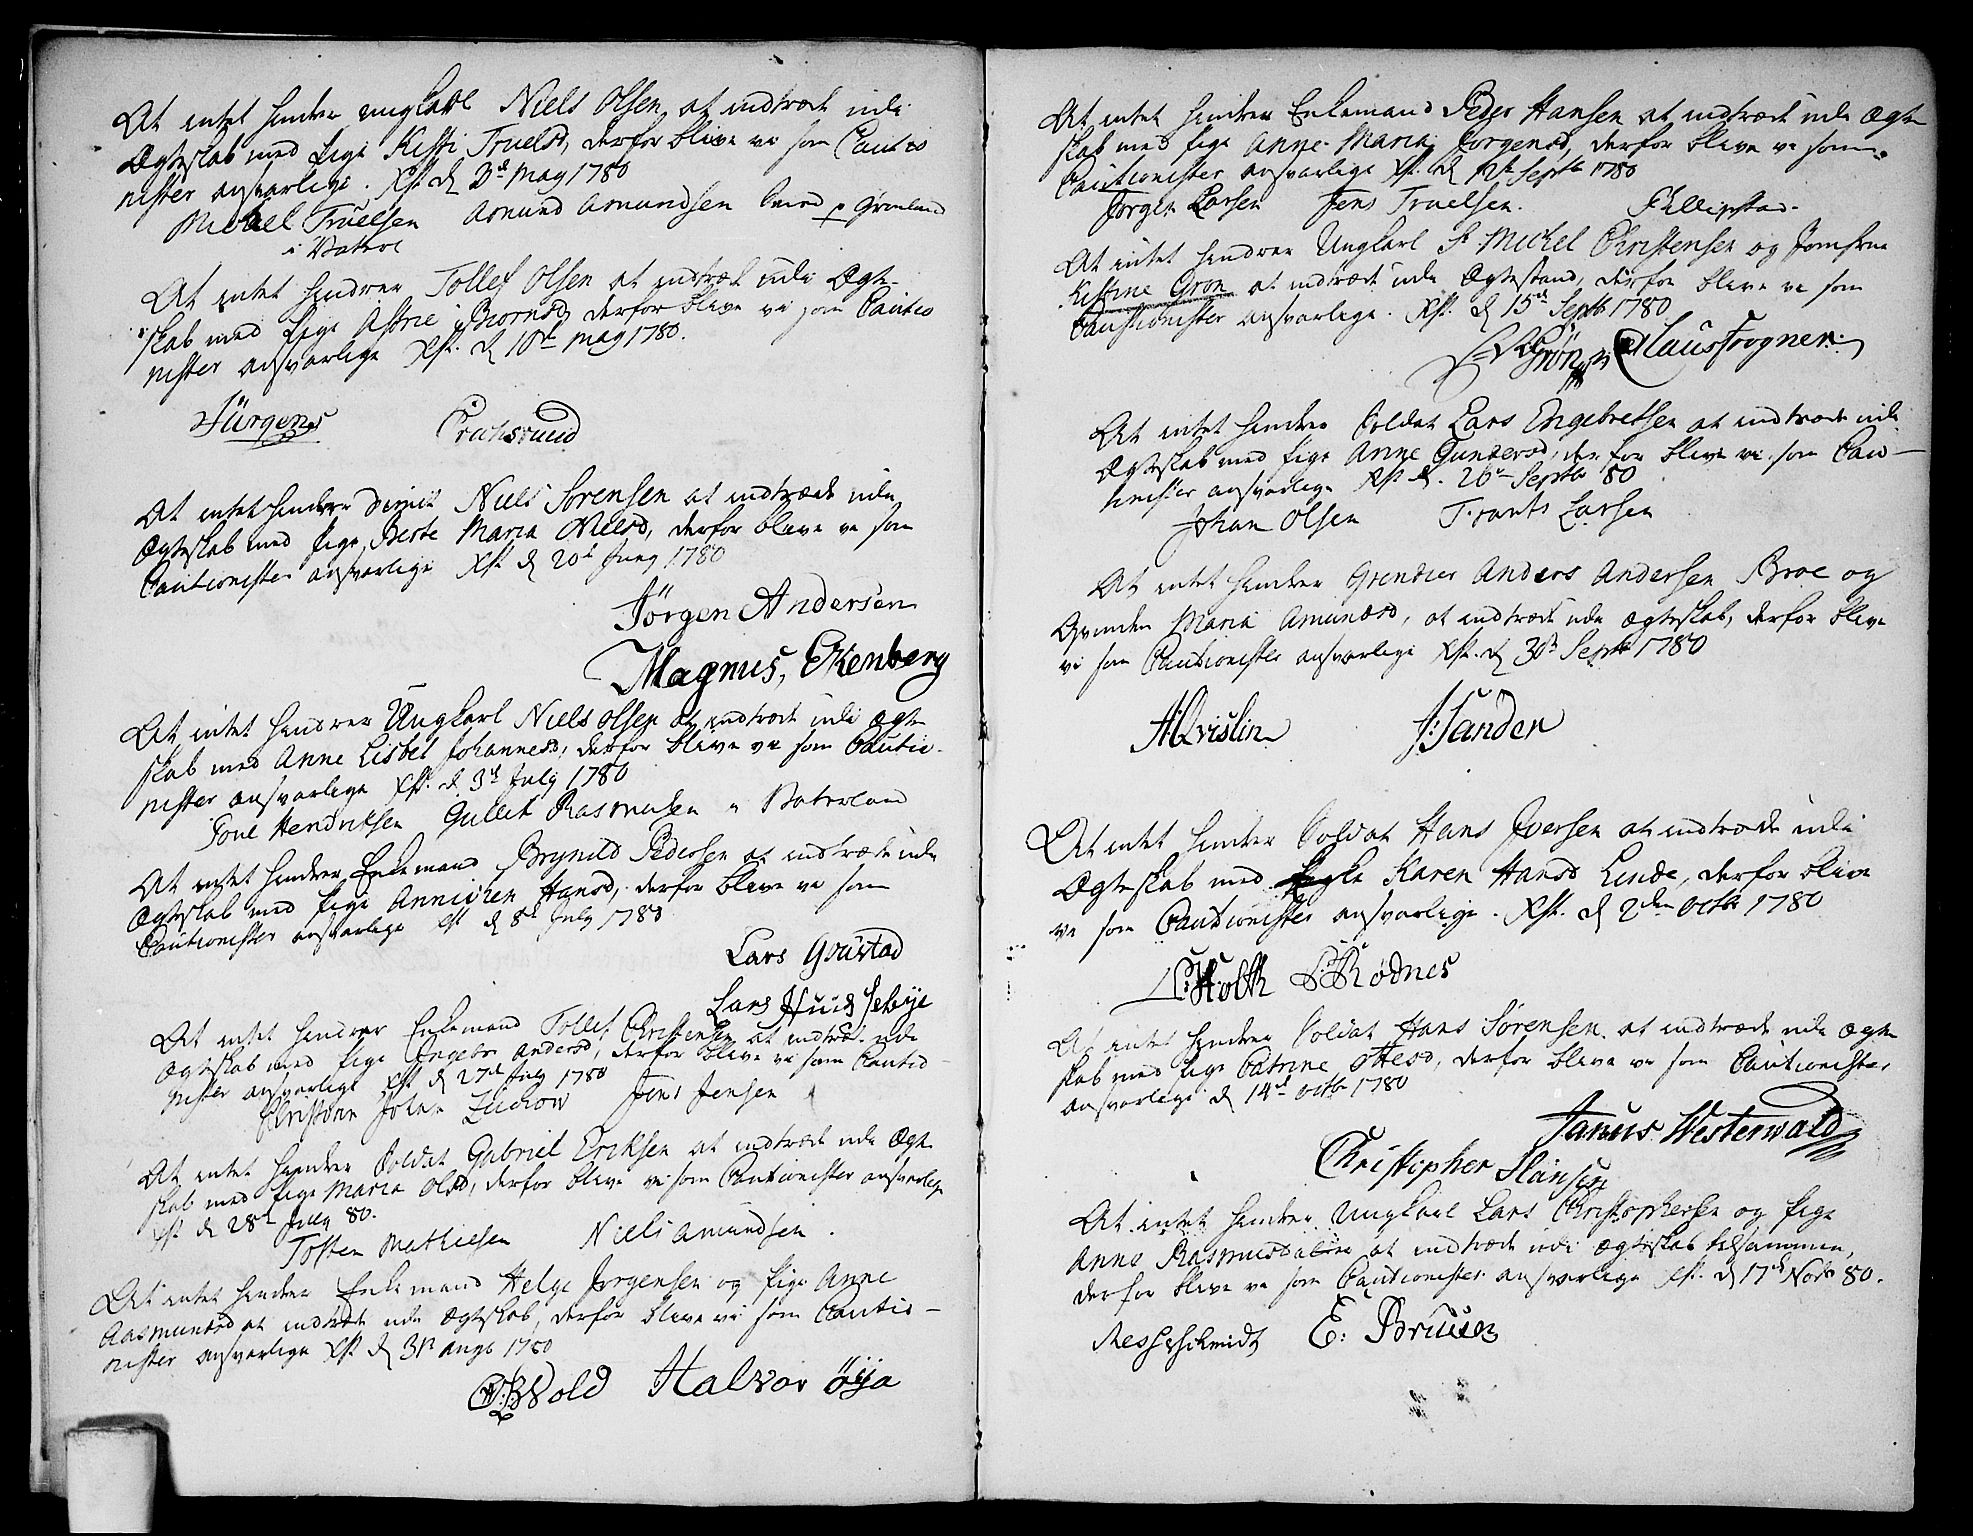 At intet hindrer ungkarl Niels Olsen at indtræde udi
Ægteskab med Pige Kisti Truelsd, derfor blive vi som Cautio
nister ansvarlige. Xst. d 3d May 1780
Michael Truelsen Asmund Asmundsen p Grønland
i Vaterl
At intet hindrer Tollef Olsen at indtræde udi Ægte-
skab med Pige Astrie Biørnsd, derfor blive vi som Cautio
nister ansvarlige Xst. d 10de May 1780.
Jürgens
At intet hindrer Niels Sørensen at indtræde udi
Ægteskab med Pige Berte Maria Nielsd, derfor blive vi som
Cautionister ansvarlige Xst d 20d Juny 1780
Jörgen Andersen
Magnus, Ekenberg
At intet hindrer Ungkarl Niels Olsen at indtræde udi Ægte
skab med Anne Lisbet Johannesd, derfor blive vi som Cautio-
nister ansvarlige Xst. d. 3d July 1780
Poul Hendriksen Gullik Rasmusen Vaterland
At intet hindrer Enkemand Brynild Pedersen at indtræde udi
Ægteskab med Pige Annichen Hansd, derfor blive vi som
Cautionister ansvarlige Xst d 8d July 1780
Lars Grüstad
Lars
At intet hindrer Enkemand Tollef Christensen at indtræde udi
Ægteskab med Pige Ingebr Andersd, derfor blive vi som Cautio
nister ansvarlige Xst d 27d July 1780
Jens Jensen
At intet hindrer Soldat Gabriel Eriksen at indtræde udi Ægte
skab med Pige Maria Olsd, derfor blive vi som Cautionister ansvarlige
Xst d 28d July 80.
Tosten Mathiesen Niels Amundsen.
At intet hindrer Enkemand Helge Jørgensen og Pige Anne
Aasmundsd at indtræde udi Ægteskab, derfor blive vi som Cautio-
nister ansvarlige Xst d 31 Aug 1780
Wold Halvor Öÿa
At intet hindrer Enkemand Peder Hansen at indtræde udi Ægte
skab med Pige Anne Maria Jørgensd, derfor blive vi som
Cautionister ansvarlige Xst. d Septb 1780
Jørgen Larsen Jens Truelsen. Fillipstad.
At intet hindrer Ungkarl Sr Mickel Christensen og Jomfrue
Kistine Grøn at indtræde udi Ægtestand, derfor blive vi som
Cautionister ansvarlige. Xst. d 15d Septb 1780
Grøn Claus Frogner.
At intet hindrer Soldat Lars Engebretsen at indtræde udi
Ægteskab med Pige Anne Gundersd, derfor blive vi som Cau-
tionister ansvarlige Xst d. 26 Septb 80
Johan Olsen Larsen
At intet hindrer Anders Andersen Broe og
Qvinden Maria Amundsd, at indtræde udi Ægteskab, derfor blive
vi som Cautionister ansvarlige Xst. d 30 Septb 1780
AQvislin J: Sanden
At intet hindrer Soldat Hans Iversen at indtræde udi
Ægteskab med Karen Hansd Linde, derfor blive
vi som Cautionister ansvarlige. Xst. d 2den Octb 1780
Holth Rødnes
At intet hindrer Soldat Hans Sørensen at indtræde udi Ægte
skab med Pige Catrine Olesd, derfor blive vi som Cautionister
ansvarlige d 14d Octb 1780
Janus Westerwald
Christopher Hansen
At intet hindrer Ungkarl Lars Christophersen og Pige
Anne Rasmusdatter at indtræde udi Ægteskab tilsammen,
derfor blive vi som Cautionister ansvarlige Xst. d 17d Novb 80.
Messerschmidt E: Bruun